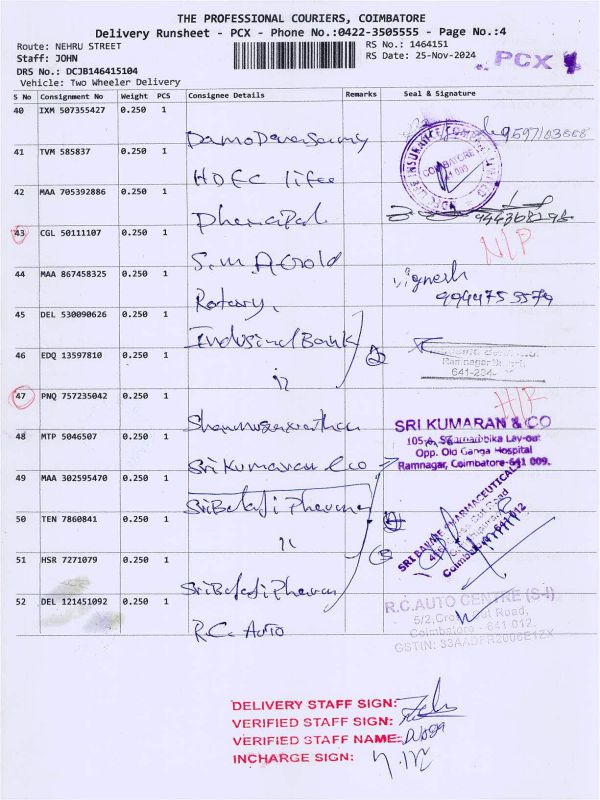 THE PROFESSIONAL COURIERS, COIMBATORE
Delivery Runsheet - PCX - Phone No.:0422-3505555 - Page No.:4
Route: NEHRU STREET
RS No.: 1464151
Staff: JOHN
RS Date: 25-Nov-2024
PCX
DRS No.: DCJB146415104
Vehicle: Two Wheeler Delivery
S No Consignment No Weight PCS Consignee Details Remarks Seal & Signature
40 IXM 507355427 0.250 1
41 TVM 585837 0.250 1 HDFC life
COIMBATORE
42 MAA 705392886 0.250 1
43 CGL 50111107 0.250 1 S.M. A Gold N/P
44 MAA 867458325 0.250 1 Rotary, Vignesh
9944755579
45 DEL 530090626 0.250 1 Indusind Bank
46 EDQ 13597810 0.250 1 11
641-234
47 PNQ 757235042 0.250 1
48 MTP 5046507 0.250 1 Sri Kumaran & co
SRI KUMARAN & CO
Opp. Old Ganga Hospital
Ramnagar, Coimbatore-641 009.
49 MAA 302595470 0.250 1 Sri Balaji Pharma
50 TEN 7860841 0.250 1 11
51 HSR 7271079 0.250 1 Sri Balaji Pharma
52 DEL 121451092 0.250 1 R.C. Auto
R.C.AUTO CENTRE (S-I)
5/2,Cross Cut Road,
Coimbatore - 641 012.
DELIVERY STAFF SIGN:
VERIFIED STAFF SIGN:
VERIFIED STAFF NAME:
INCHARGE SIGN: